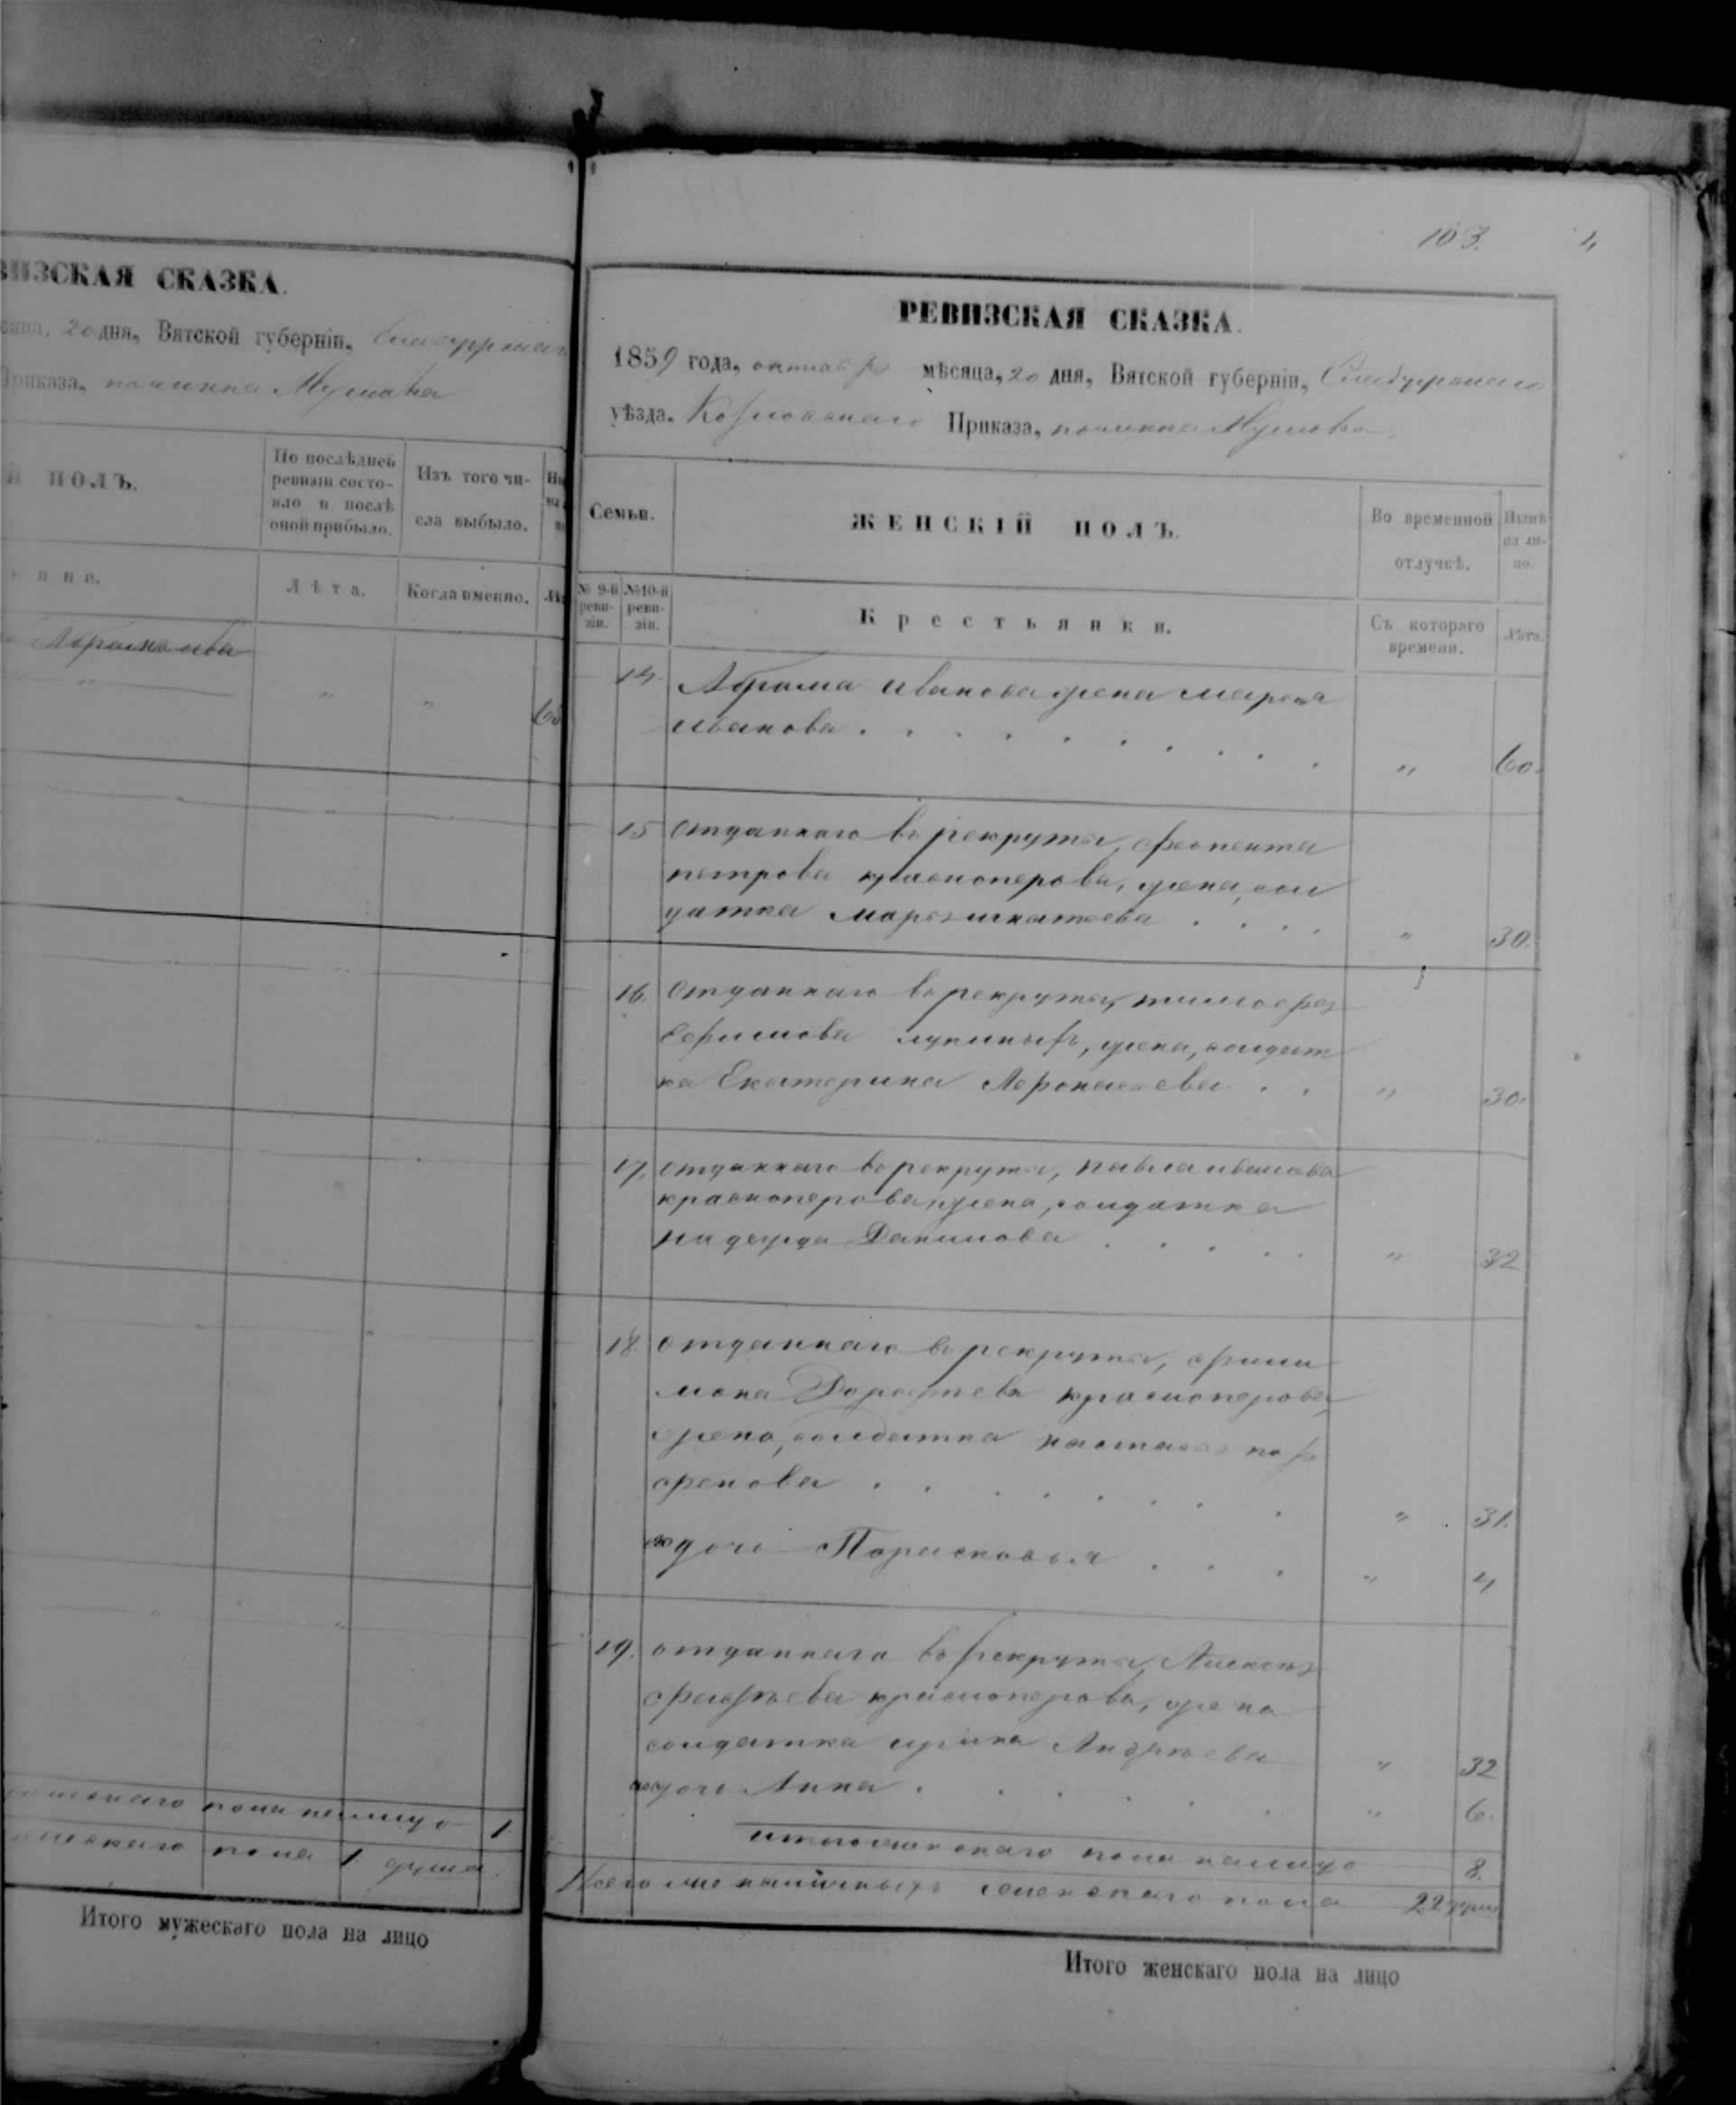 ВИЗСКАЯ СКАЗКА.
сяца, 20 дня, Вятской губерніи,
Приказа, починка
Й ПОЛЪ.
По послѣдней
ревизіи состо-
яло и послѣ
оной прибыло.
Изъ того чи-
сла выбыло.
я н е.
Лѣта.
Когда именно.
" "
1
пола 1 душа.
Итого мужескаго пола на лицо
103. 4
РЕВИЗСКАЯ СКАЗКА.
1859 года, октября мѣсяца, 20 дня, Вятской губерніи, Слободскаго
уѣзда, Приказа, починка
Семьи.
ЖЕНСКІЙ ПОЛЪ.
Во временной
отлучкѣ.
Нынѣ
на ли-
цо.
№ 9-й
реви-
зіи.
№10-й
реви-
зіи.
Крестьянки.
Съ котораго
времени.
Лѣта.
14 Абрама Иванова жена Марфа
Иванова . . . . . . . . . " 60.
15 Отданнаго въ рекруты,
петрова красноперова, жена, сол
датка игнатьева . . . . " 30.
16. Отданнаго въ рекруты, тимофея
Ефимова лукиныхъ, жена, солдат
ка Екатерина Афонасьева . . " 30.
17. отданнаго въ рекруты, павла иванова
красноперова, жена, солдатка
надежда Данилова . . . . . " 32
18. отданнаго въ рекруты, фили
мона Дорофѣева красноперова,
жена, солдатка настасья пар
фенова . . . . . . . . " 31.
ея дочь Парасковья . . . " 4
19. отданнаго въ рекруты, Алексѣя
фадѣева красноперова, жена
солдатка ирина Андрѣева " 32
ея дочь Анна . . . . . . " 6.
итого женскаго пола налицо 8.
Всего наличныхъ женскаго пола 22 душ
Итого женскаго пола на лицо